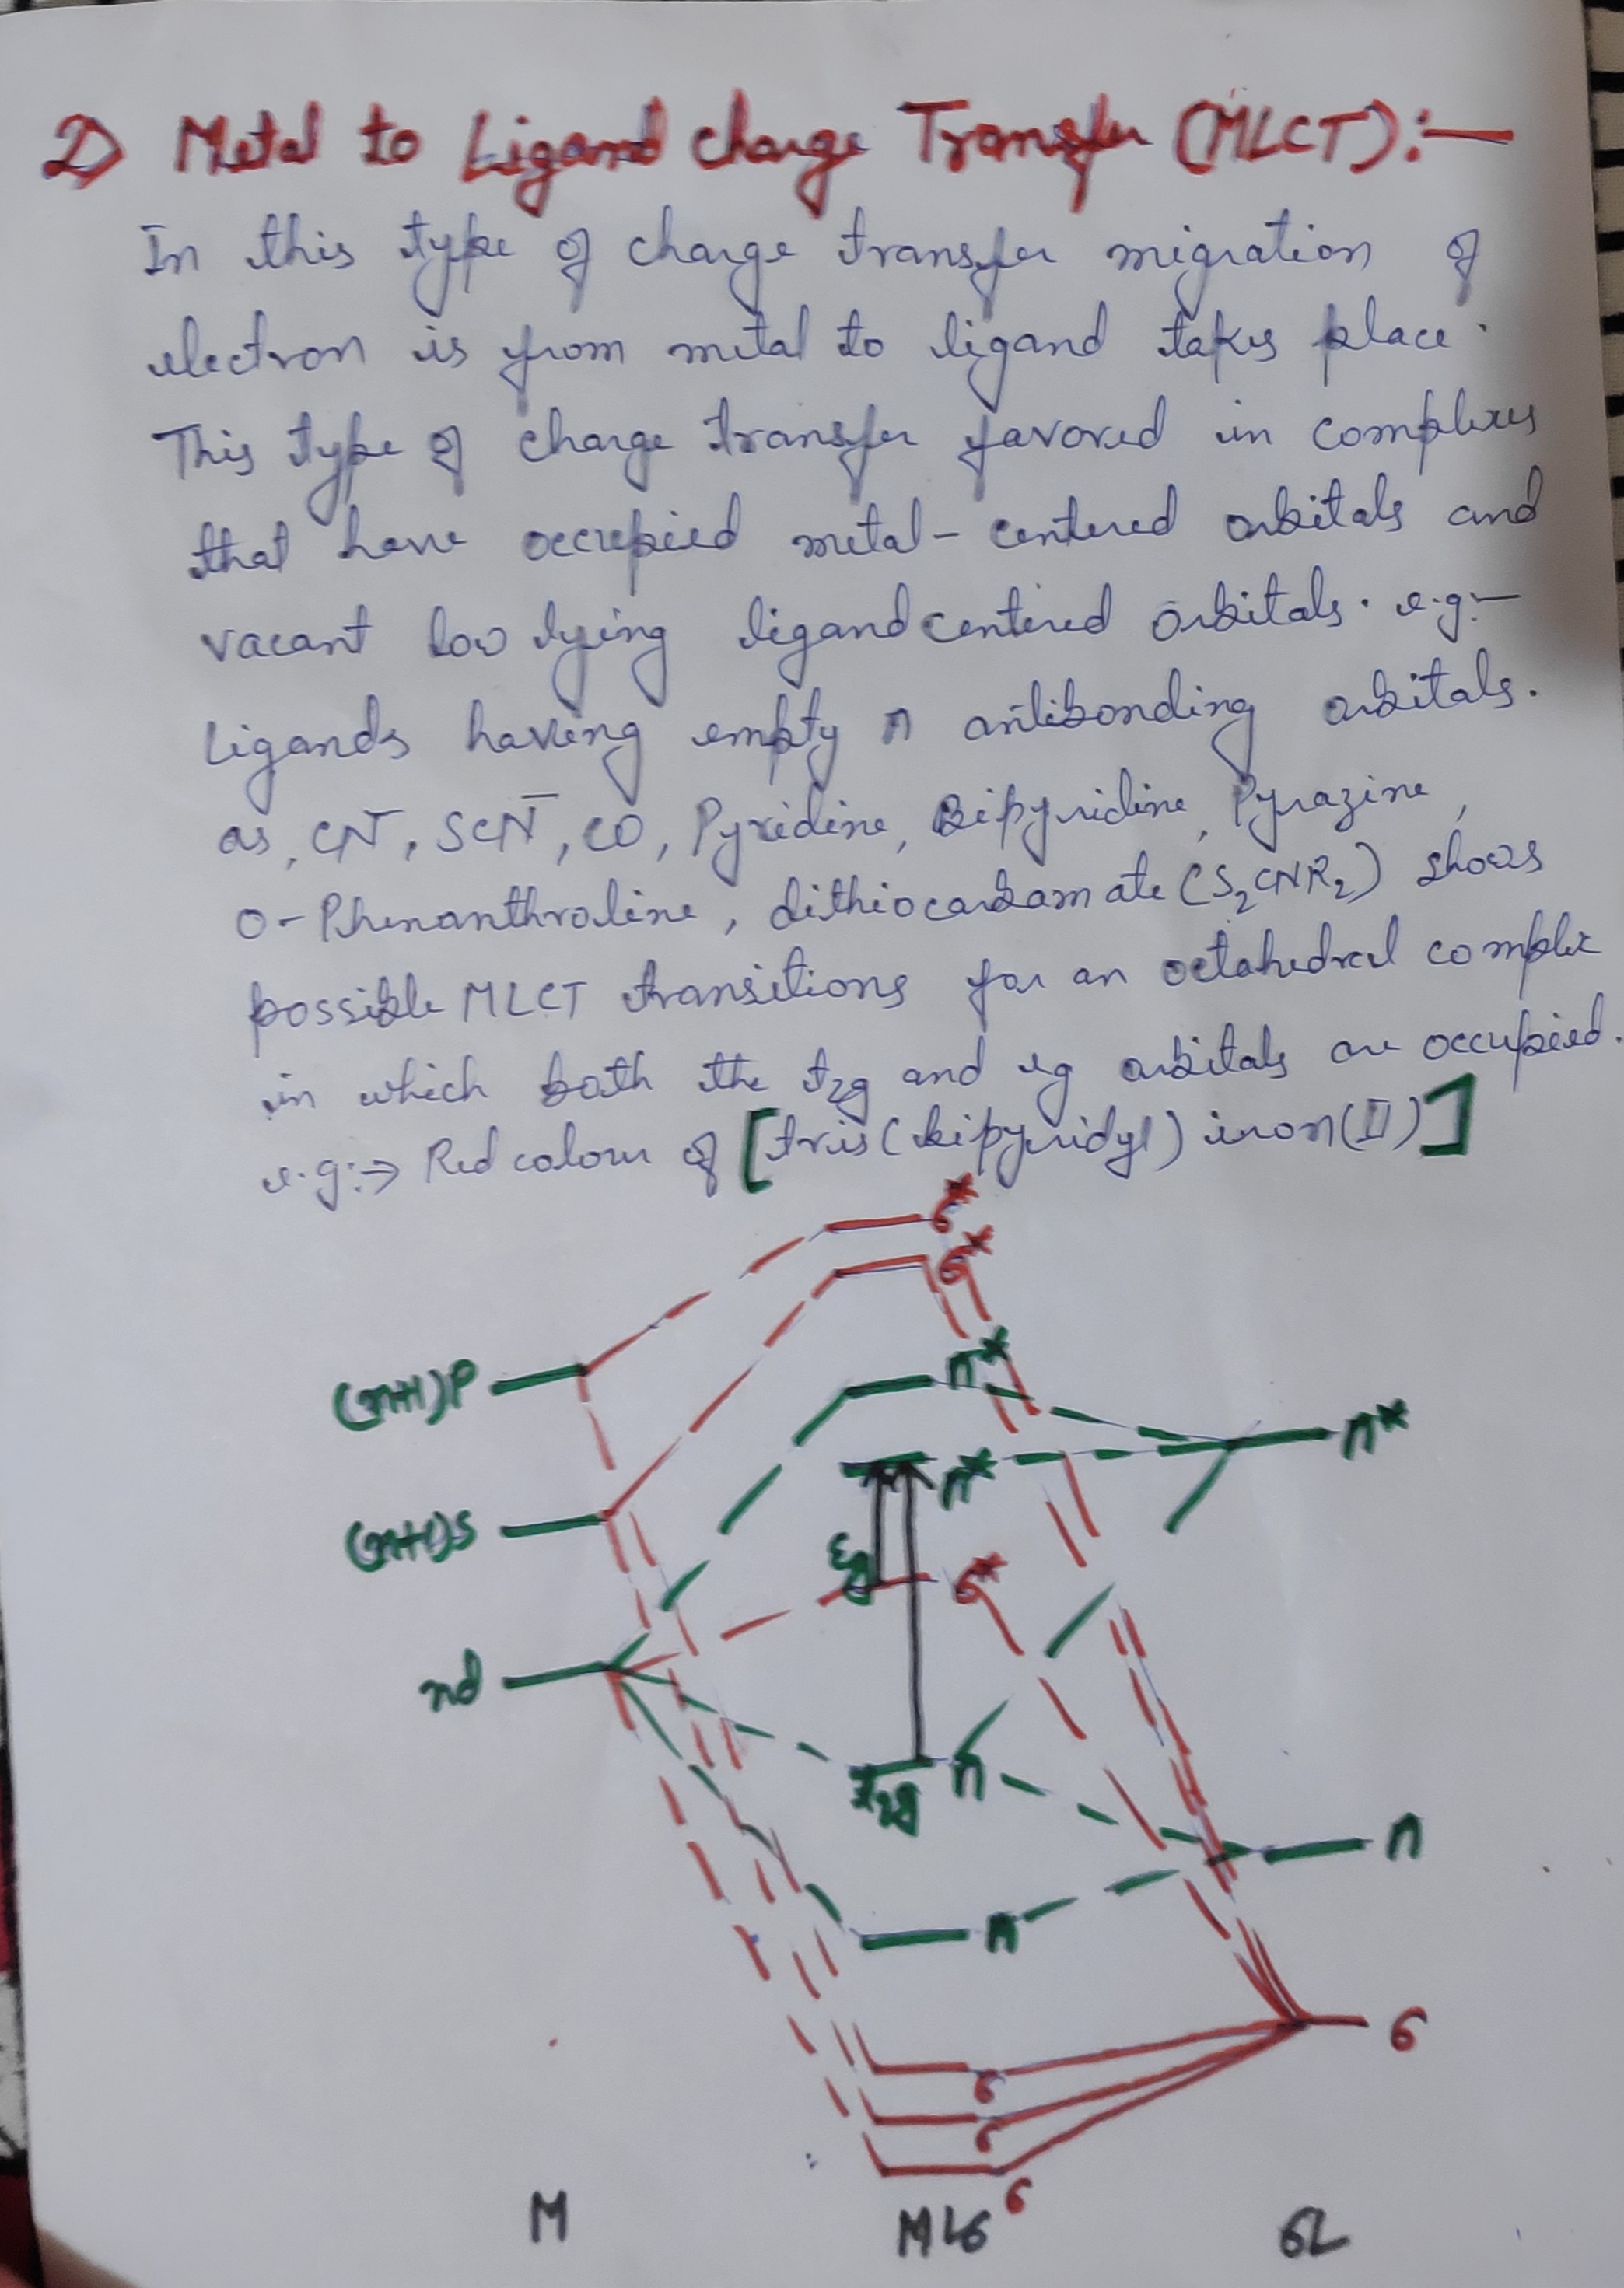 2) Metal to Ligand charge Transfer (MLCT):—
In this type of charge transfer migration of
electron is from metal to ligand takes place.
This type of charge transfer favored in complexes
that have occupied metal-centered orbitals and
vacant low lying ligand centered orbitals. e.g:—
Ligands having empty π antibonding orbitals.
as, CN⁻, SCN⁻, CO, Pyridine, Bipyridine, Pyrazine,
O-Phenanthroline, dithiocarbamate (S₂CNR₂) shows
possible MLCT transitions for an octahedral complex
in which both the t₂g and eg orbitals are occupied.
e.g:→ Red colour of [tris(bipyridyl) iron(II)]
σ*
σ*
(n+1)P
π*
π*
π*
(n+1)S
Eg
σ*
nd
t₂g
π
π
π
σ
σ
σ
σ
M
ML6
6L